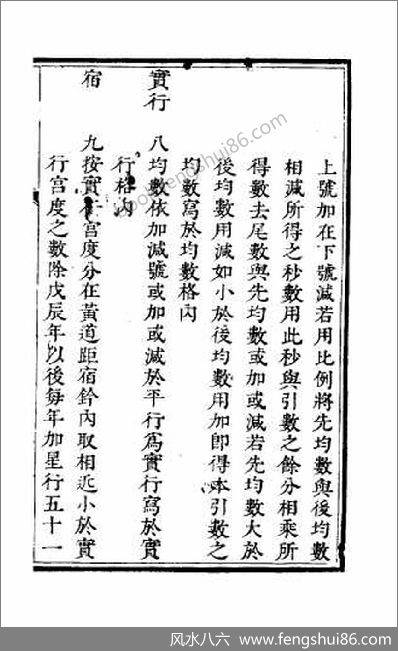 上號加在下號減若用比例將先均數與後均數
相減所得之秒數用此秒與引數之餘分相乘所
得數去尾數與先均數或加或減若先均數大於
後均數用減如小於後均數用加即得本引數之
均數寫於均數格内
實行 八均數依加減號或加或減於平行爲實行寫於實
行格内
宿 九按實行宮度分在黃道距宿鈐内取相近小於實
行宮度之數除戊辰年以後每年加星行五十一
风水八六 www.fengshui86.com